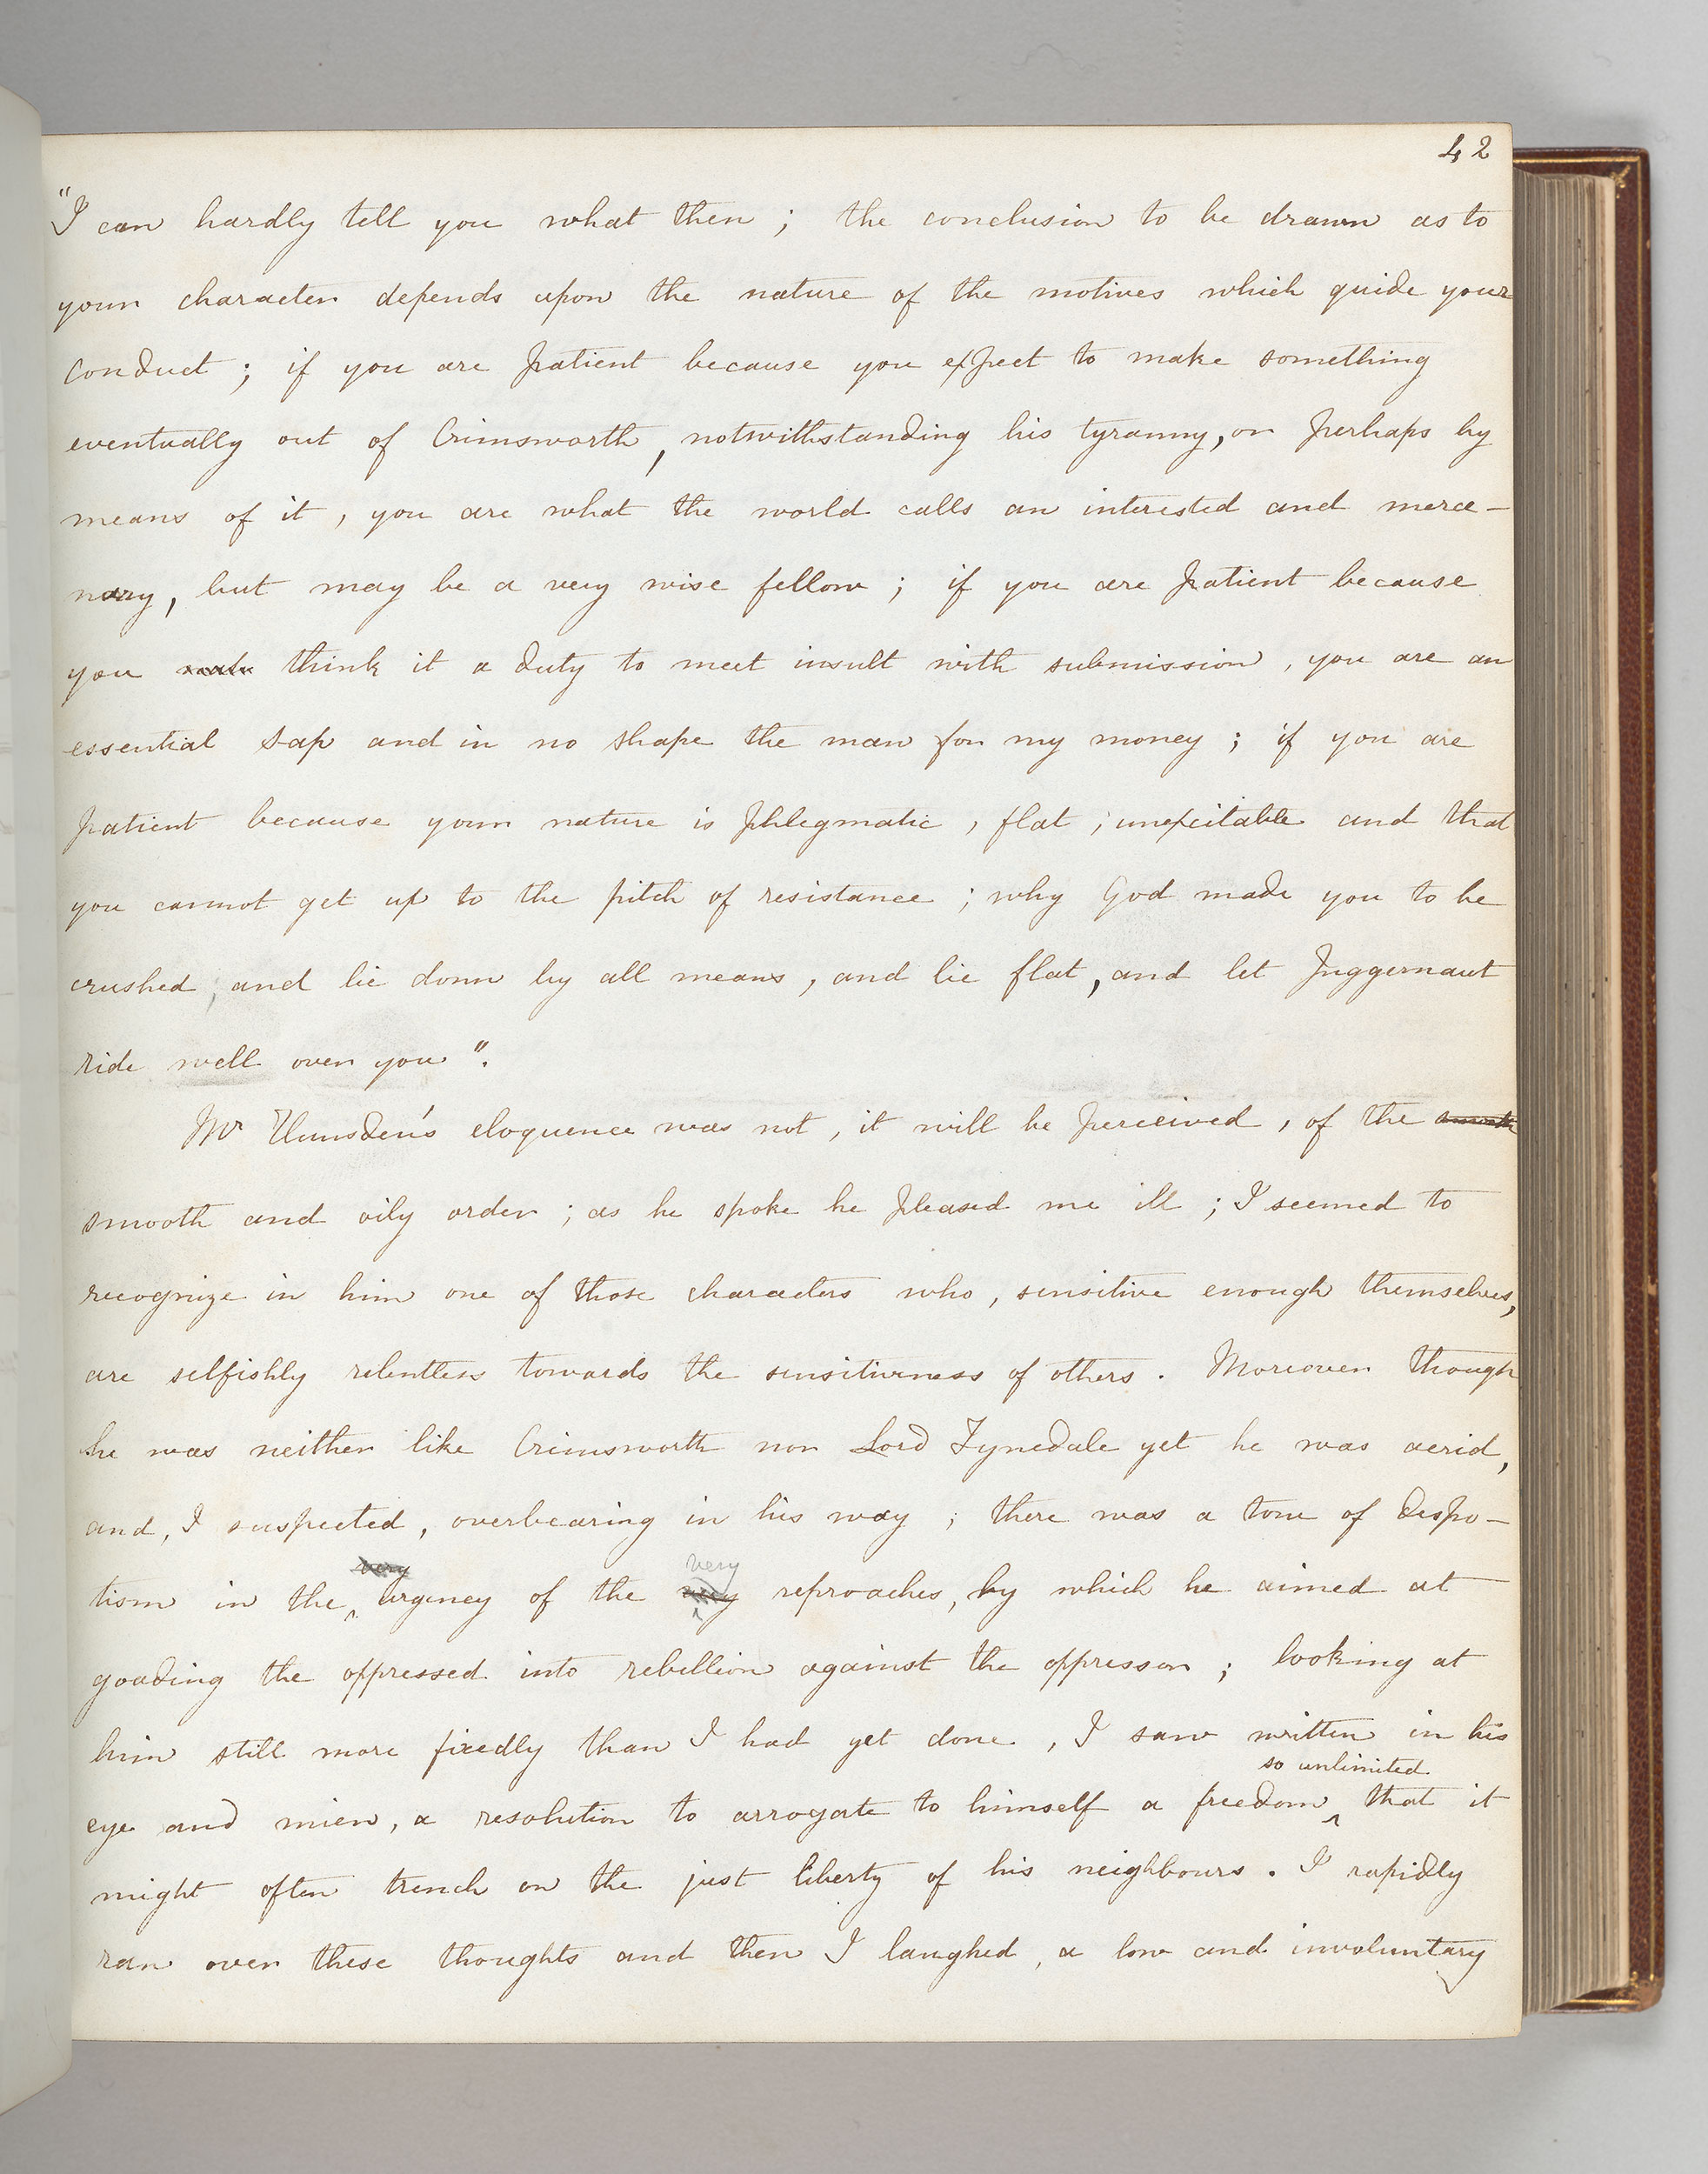 42
"I can hardly tell you what then ; the conclusion to be drawn as to
your character depends upon the nature of the motives which guide your
conduct ; if you are patient because you expect to make something
eventually out of Crimsworth, notwithstanding his tyranny, or perhaps by
means of it, you are what the world calls an interested and merce-
nary, but may be a very wise fellow ; if you are patient because
you think it a duty to meet insult with submission, you are an
essential sap and in no shape the man for my money ; if you are
patient because your nature is phlegmatic, flat, inexcitable and that
you cannot get up to the pitch of resistance ; why God made you to be
crushed, and lie down by all means, and lie flat, and let Juggernaut
ride well over you".
Mr Hunsden's eloquence was not, it will be perceived, of the smooth
smooth and oily order ; as he spoke he pleased me ill ; I seemed to
recognize in him one of those characters who, sensitive enough themselves,
are selfishly relentless towards the sensitiveness of others. Moreover though
he was neither like Crimsworth nor Lord Tynedale yet he was acrid,
and, I suspected, overbearing in his way ; there was a tone of despo-
very very
tism in the urgency of the very reproaches, by which he aimed at
goading the oppressed into rebellion against the oppressor ; looking at
him still more fixedly than I had yet done, I saw written in his
so unlimited
eye and mien, a resolution to arrogate to himself a freedom that it
might often trench on the just liberty of his neighbours. I rapidly
ran over these thoughts and then I laughed, a low and involuntary